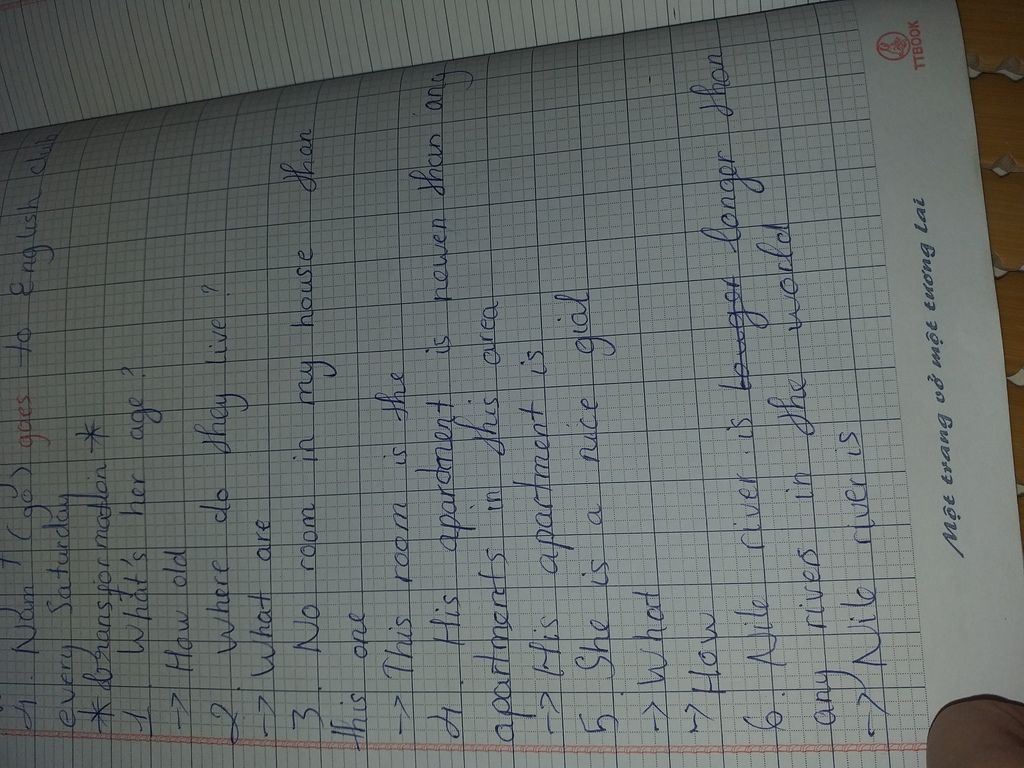 4. Nam + (go) goes to English club
every Saturday
* transformation *
1. What's her age?
-> How old
2. Where do they live?
-> What are
3. No room in my house than
this one
-> This room is the
4. His apartment is newen than any
apartments in this area
-> His apartment is
5. She is a nice gial
-> What
-> How
6. Nile river is longer than
any rivers in the world
-> Nile river is
Một trang vở một tương lai
TTBOOK